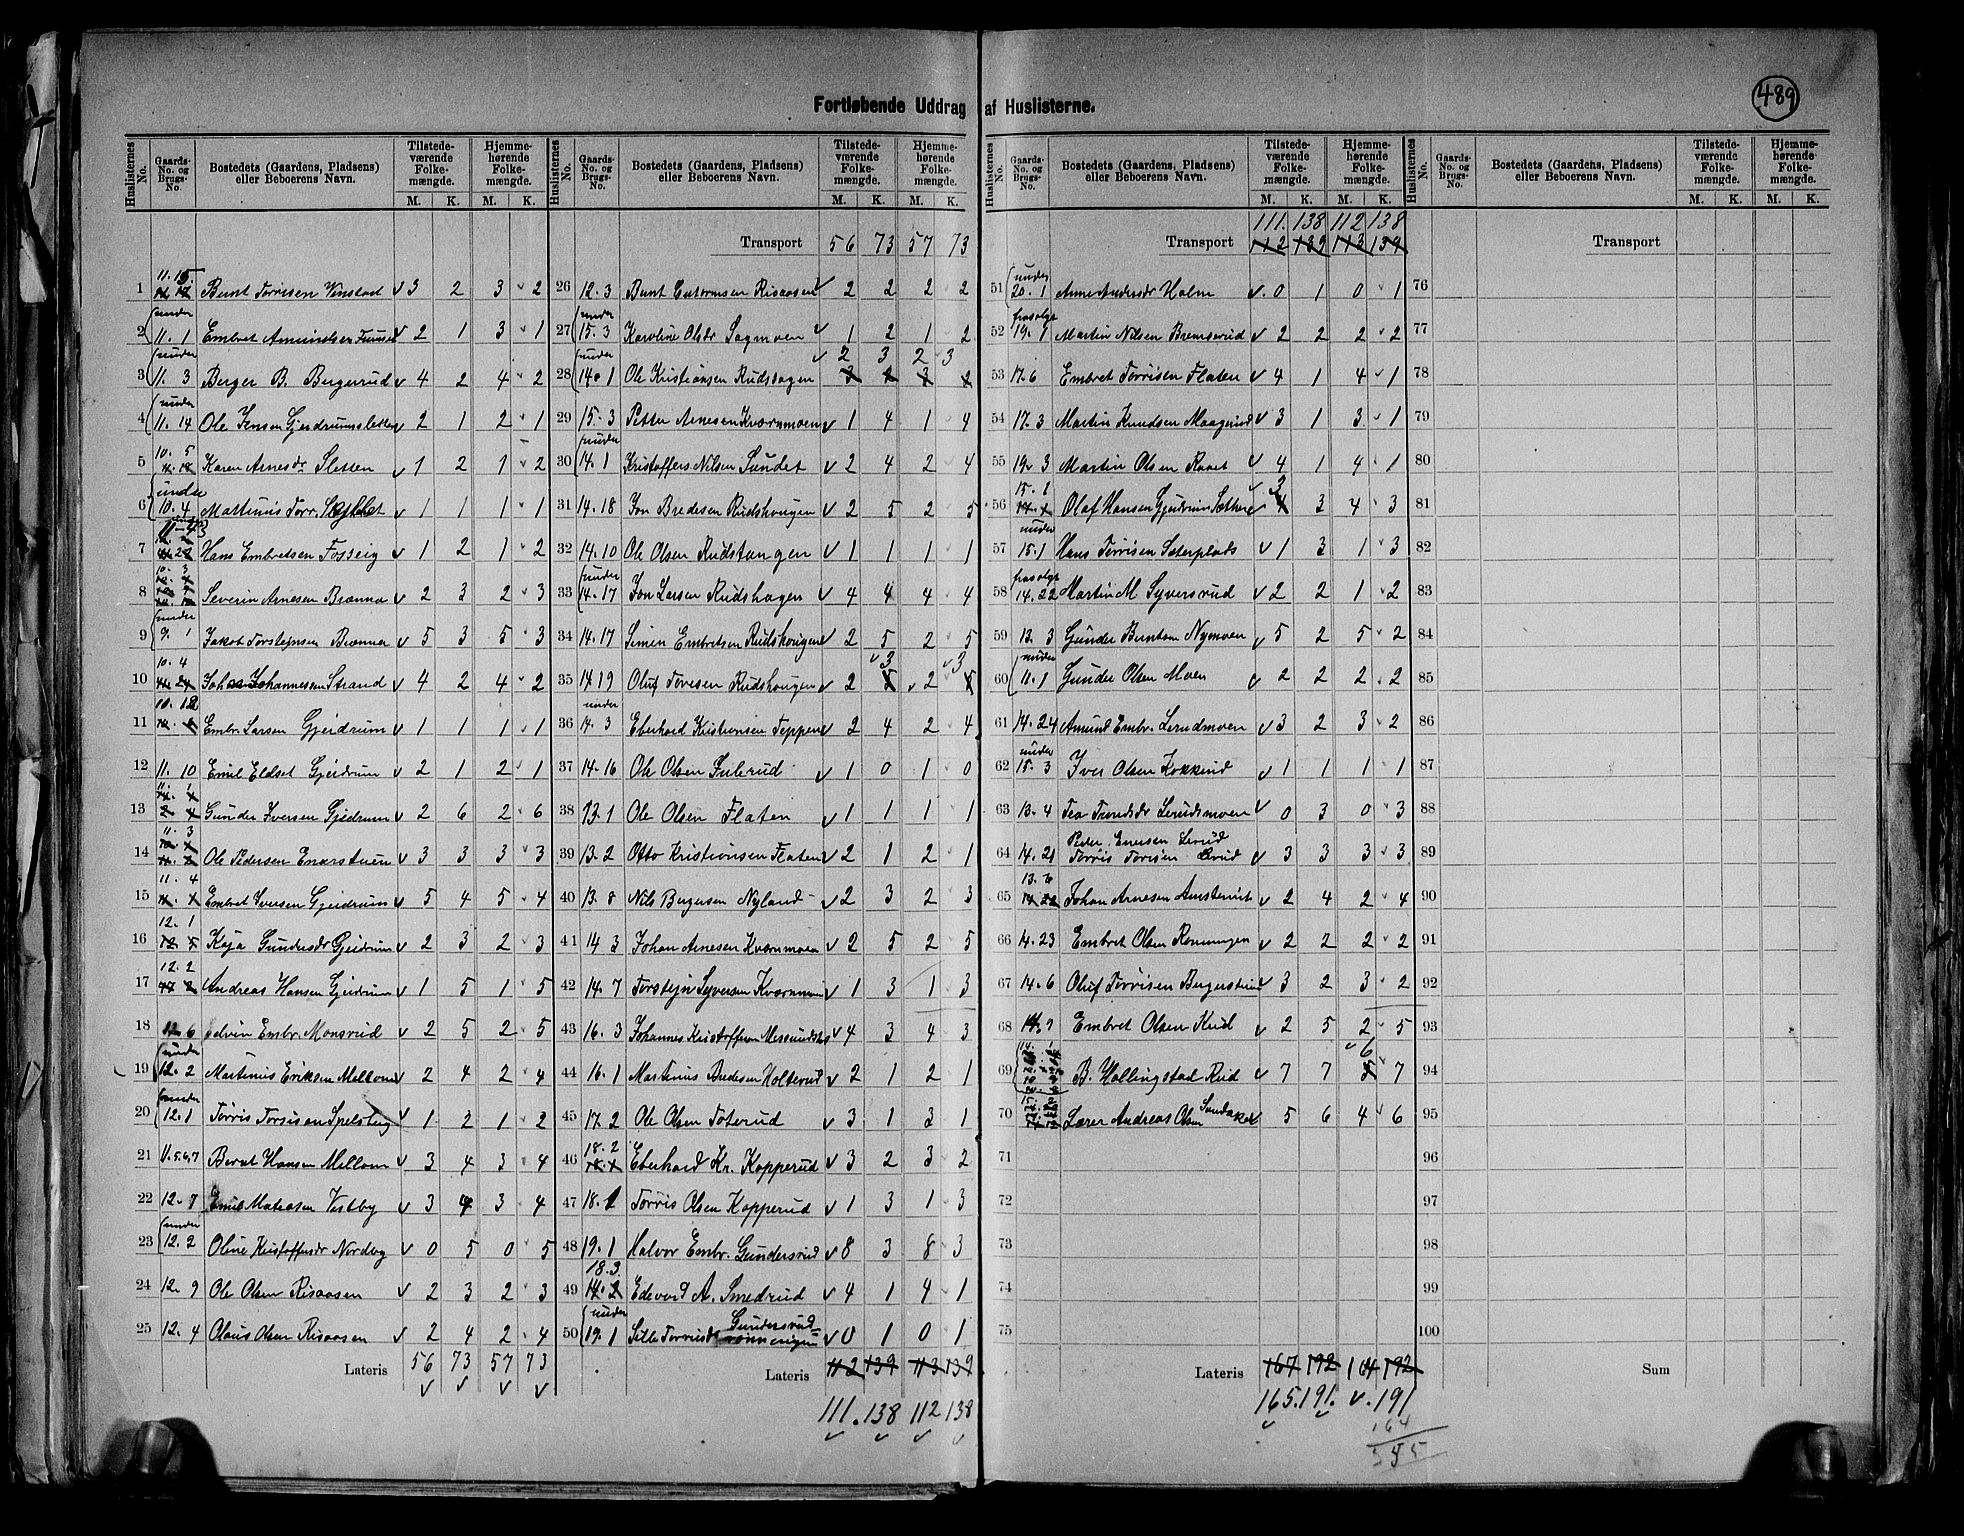 489
Fortløbende Uddrag af Huslisterne.
Huslisternes No. Gaards-No. og Brugs-No. Bostedets (Gaardens, Pladsens) eller Beboerens Navn. Tilstedeværende Folkemængde. Hjemmehørende Folkemængde.
M. K. M. K.
1 11. 15 Bunt Torrisen Vinstad 3 2 3 2
2 under 11. 1 Embret Amundsen 2 1 3 1
3 under 11. 3 Berger B. Bergerud 4 2 4 2
4 under 11. 14 Ole Jensen Gjerdrumsletten 2 1 2 1
5 10. 5 Karen Arnesdr Sletten 1 2 1 2
6 under 10. 4 Martinus Torr. 1 1 1 1
7 Hans Embretsen Fosseig 1 2 1 2
8 10. 3 Severin Arnesen Brænna 2 3 2 3
9 under 9. 1 Jakob Torstejnsen Brænna 5 3 5 3
10 10. 4 Johannesen Strand 4 2 4 2
11 10. 12 Embr. Larsen Gjerdrum 1 1 1 1
12 11. 10 Emil Eldset Gjerdrum 2 1 2 1
13 11. 1 Gunder Iversen Gjerdrum 2 6 2 6
14 11. 3 Ole Pedersen Enerstuen 3 3 3 3
15 11. 4 Embret Iversen Gjerdrum 5 4 5 4
16 12. 1 Kaja Gundersdr Gjerdrum 2 3 2 3
17 12. 2 Andreas Hansen Gjerdrum 1 5 1 5
18 12 6 Edvin Embr. Monsrud 2 5 2 5
19 under 12. 2 Martinus Eriksen Mellom 2 4 2 4
20 under 12. 1 Torris Torrisen Spelsberg 1 2 1 2
21 11. 5,6,7 Bernt Hansen Mellom 3 4 3 4
22 12. 7 Emil Mateasen Vestby 3 4 3 4
23 under 12. 2 Oline Kristoffersdr Nordby 0 5 0 5
24 12. 9 Ole Olsen Risaasen 2 3 2 3
25 12. 4 Olaus Olsen Risaasen 2 4 2 4
Lateris 56 73 57 73
Transport 56 73 57 73
26 12. 3 Bunt Guttormsen Risaasen 2 2 2 2
27 under 15. 3 Karoline Olsdr Sagmoen 1 2 1 2
28 under 14. 1 Ole Kristiansen Rudshagen 2 3 2 3
29 15. 3 Petter Arnesen Kvernmoen 1 4 1 4
30 under 14. 1 Kristoffers Nilsen Sundet 2 4 2 4
31 14. 18 Jon Bredesen Rudshougen 2 5 2 5
32 14. 10 Ole Olsen Rudstangen 1 1 1 1
33 under 14. 17 Jon Larsen Rudshagen 4 4 4 4
34 14. 17 Simen Embretsen Rudshougen 2 5 2 5
35 14 19 Oluf Torresen Rudshougen 2 3 2 3
36 under 14. 3 Eberhard Kristiansen Teppen 2 4 2 4
37 14. 16 Ole Olsen Julerud 1 0 1 0
38 13. 1 Ole Olsen Flaten 1 1 1 1
39 13. 2 Otto Kristiansen Flaten 2 1 2 1
40 13. 8 Nils Bergersen Nyland 2 3 2 3
41 14 3 Johan Arnesen Kvernmoen 2 5 2 5
42 14. 7 Torstejn Syversen Kvernmoen 1 3 1 3
43 16. 3 Johannes Kristoffersen 4 3 4 3
44 16. 1 Martinus Bredesen Holterud 2 1 2 1
45 17. 2 Ole Olsen Toterud 3 1 3 1
46 18. 2 Eberhard Kr. Kopperud 3 2 3 2
47 18. 1 Torris Olsen Kopperud 1 3 1 3
48 19. 1 Halvor Embr. Gundersrud 8 3 8 3
49 18. 3. Edevard A. Smedrud 4 1 4 1
50 under 19. 1 Sille Torrisdr Gundersrud 0 1 0 1
Lateris 112 139 113 139
111. 138 112 138
Transport 111. 138 112 138
112 139 113 139
51 under 20. 1 Anne Andersdr Holm 0 1 0 1
52 frasolgt 19. 1 Martin Nilsen Bremserud 2 2 2 2
53 17. 6 Embret Torrisen Flaten 4 1 4 1
54 17. 3 Martin Knudsen Maagerud 3 1 3 1
55 19. 3 Martin Olsen Raaet 4 1 4 1
56 15. 1 Olaf Hansen Gjerdrum Sætheren 3 3 4 3
57 under 15. 1 Hans Torrisen Sæterplads 1 3 1 3
58 frasolgt 14. 22 Martin M Syversrud 2 2 1 2
59 12. 3 Gunder Buntsen Nymoen 5 2 5 2
60 under 11. 1 Gunder Olsen Moen 2 2 2 2
61 14. 24 Amund Embr. Lerudmoen 3 2 3 2
62 under 15. 3 Iver Olsen Kokkerud 1 1 1 1
63 13. 4 Tea Trundsdr Lerudsmoen 0 3 0 3
64 14. 21 Peder Enersen Lerud
Torris Torrisen Lerud 3 3 3 3
65 13. 6 Johan Arnesen 2 4 2 4
66 14. 23 Embret Olsen Rønningen 2 2 2 2
67 14. 6 Oluf Torrisen Bergestuen 3 2 3 2
68 14. 9 Embret Olsen Rud 2 5 2 5
69 14. 1 B. Hollingstad Rud 7 7 6 7
70 15. 2 Lærer Andreas Olsen Sandaker 5 6 4 6
71
72
73
74
75
Lateris 167 192 164 192
165. 191. 191
164
355
Transport
76
77
78
79
80
81
82
83
84
85
86
87
88
89
90
91
92
93
94
95
96
97
98
99
100
Sum